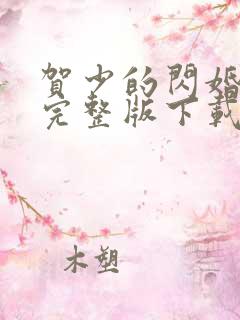 賀少的閃婚
完整版下載
木塑